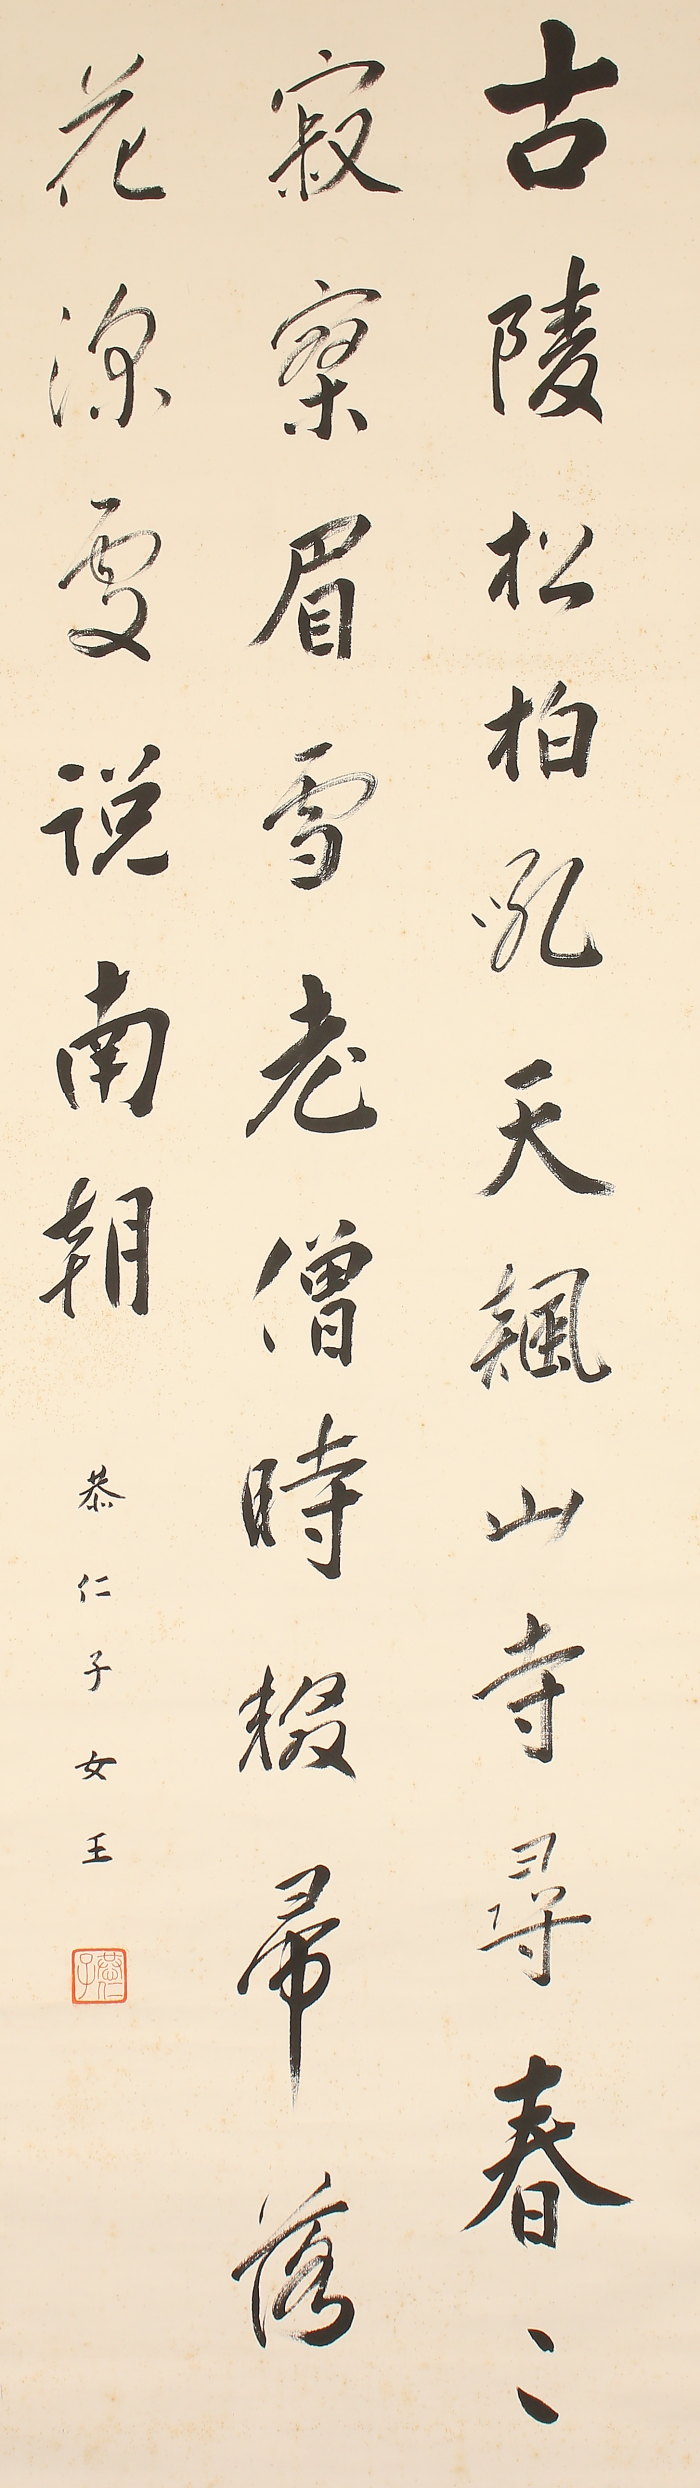 古陵松柏吼天飆山寺尋春々
寂寥眉雪老僧時輟帚落
花深處説南朝
恭仁子女王
恭仁子